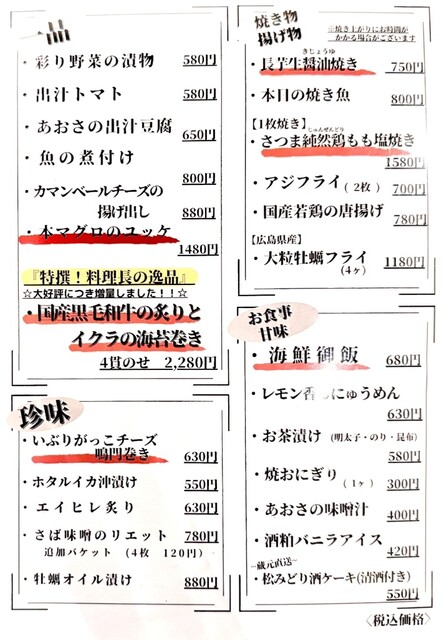 一品
・彩り野菜の漬物 580円
・出汁トマト 580円
・あおさの出汁豆腐 650円
・魚の煮付け 800円
・カマンベールチーズの
揚げ出し 880円
・本マグロのユッケ
1480円
『特撰!料理長の逸品』
☆大好評につき増量しました!!☆
・国産黒毛和牛の炙りと
イクラの海苔巻き
4貫のせ 2,280円
珍味
・いぶりがっこチーズ
鳴門巻き 630円
・ホタルイカ沖漬け 550円
・エイヒレ炙り 630円
・さば味噌のリエット 780円
追加バケット (4枚 120円)
・牡蠣オイル漬け 880円
焼き物
揚げ物
※焼き上がりにお時間が
かかる場合がございます
きじょうゆ
・長芋生醤油焼き 750円
・本日の焼き魚 800円
【1枚焼き】
じゅんぜんどり
・さつま純然鶏もも塩焼き
1580円
・アジフライ(2枚) 700円
・国産若鶏の唐揚げ 780円
【広島県産】
・大粒牡蠣フライ 1180円
(4ヶ)
お食事
甘味
・海鮮御飯 680円
・レモン香るにゅうめん
630円
・お茶漬け(明太子・のり・昆布)
580円
・焼おにぎり (1ヶ) 300円
・あおさの味噌汁 400円
・酒粕バニラアイス
420円
~蔵元直送~
・松みどり酒ケーキ(清酒付き)
550円
〈税込価格〉